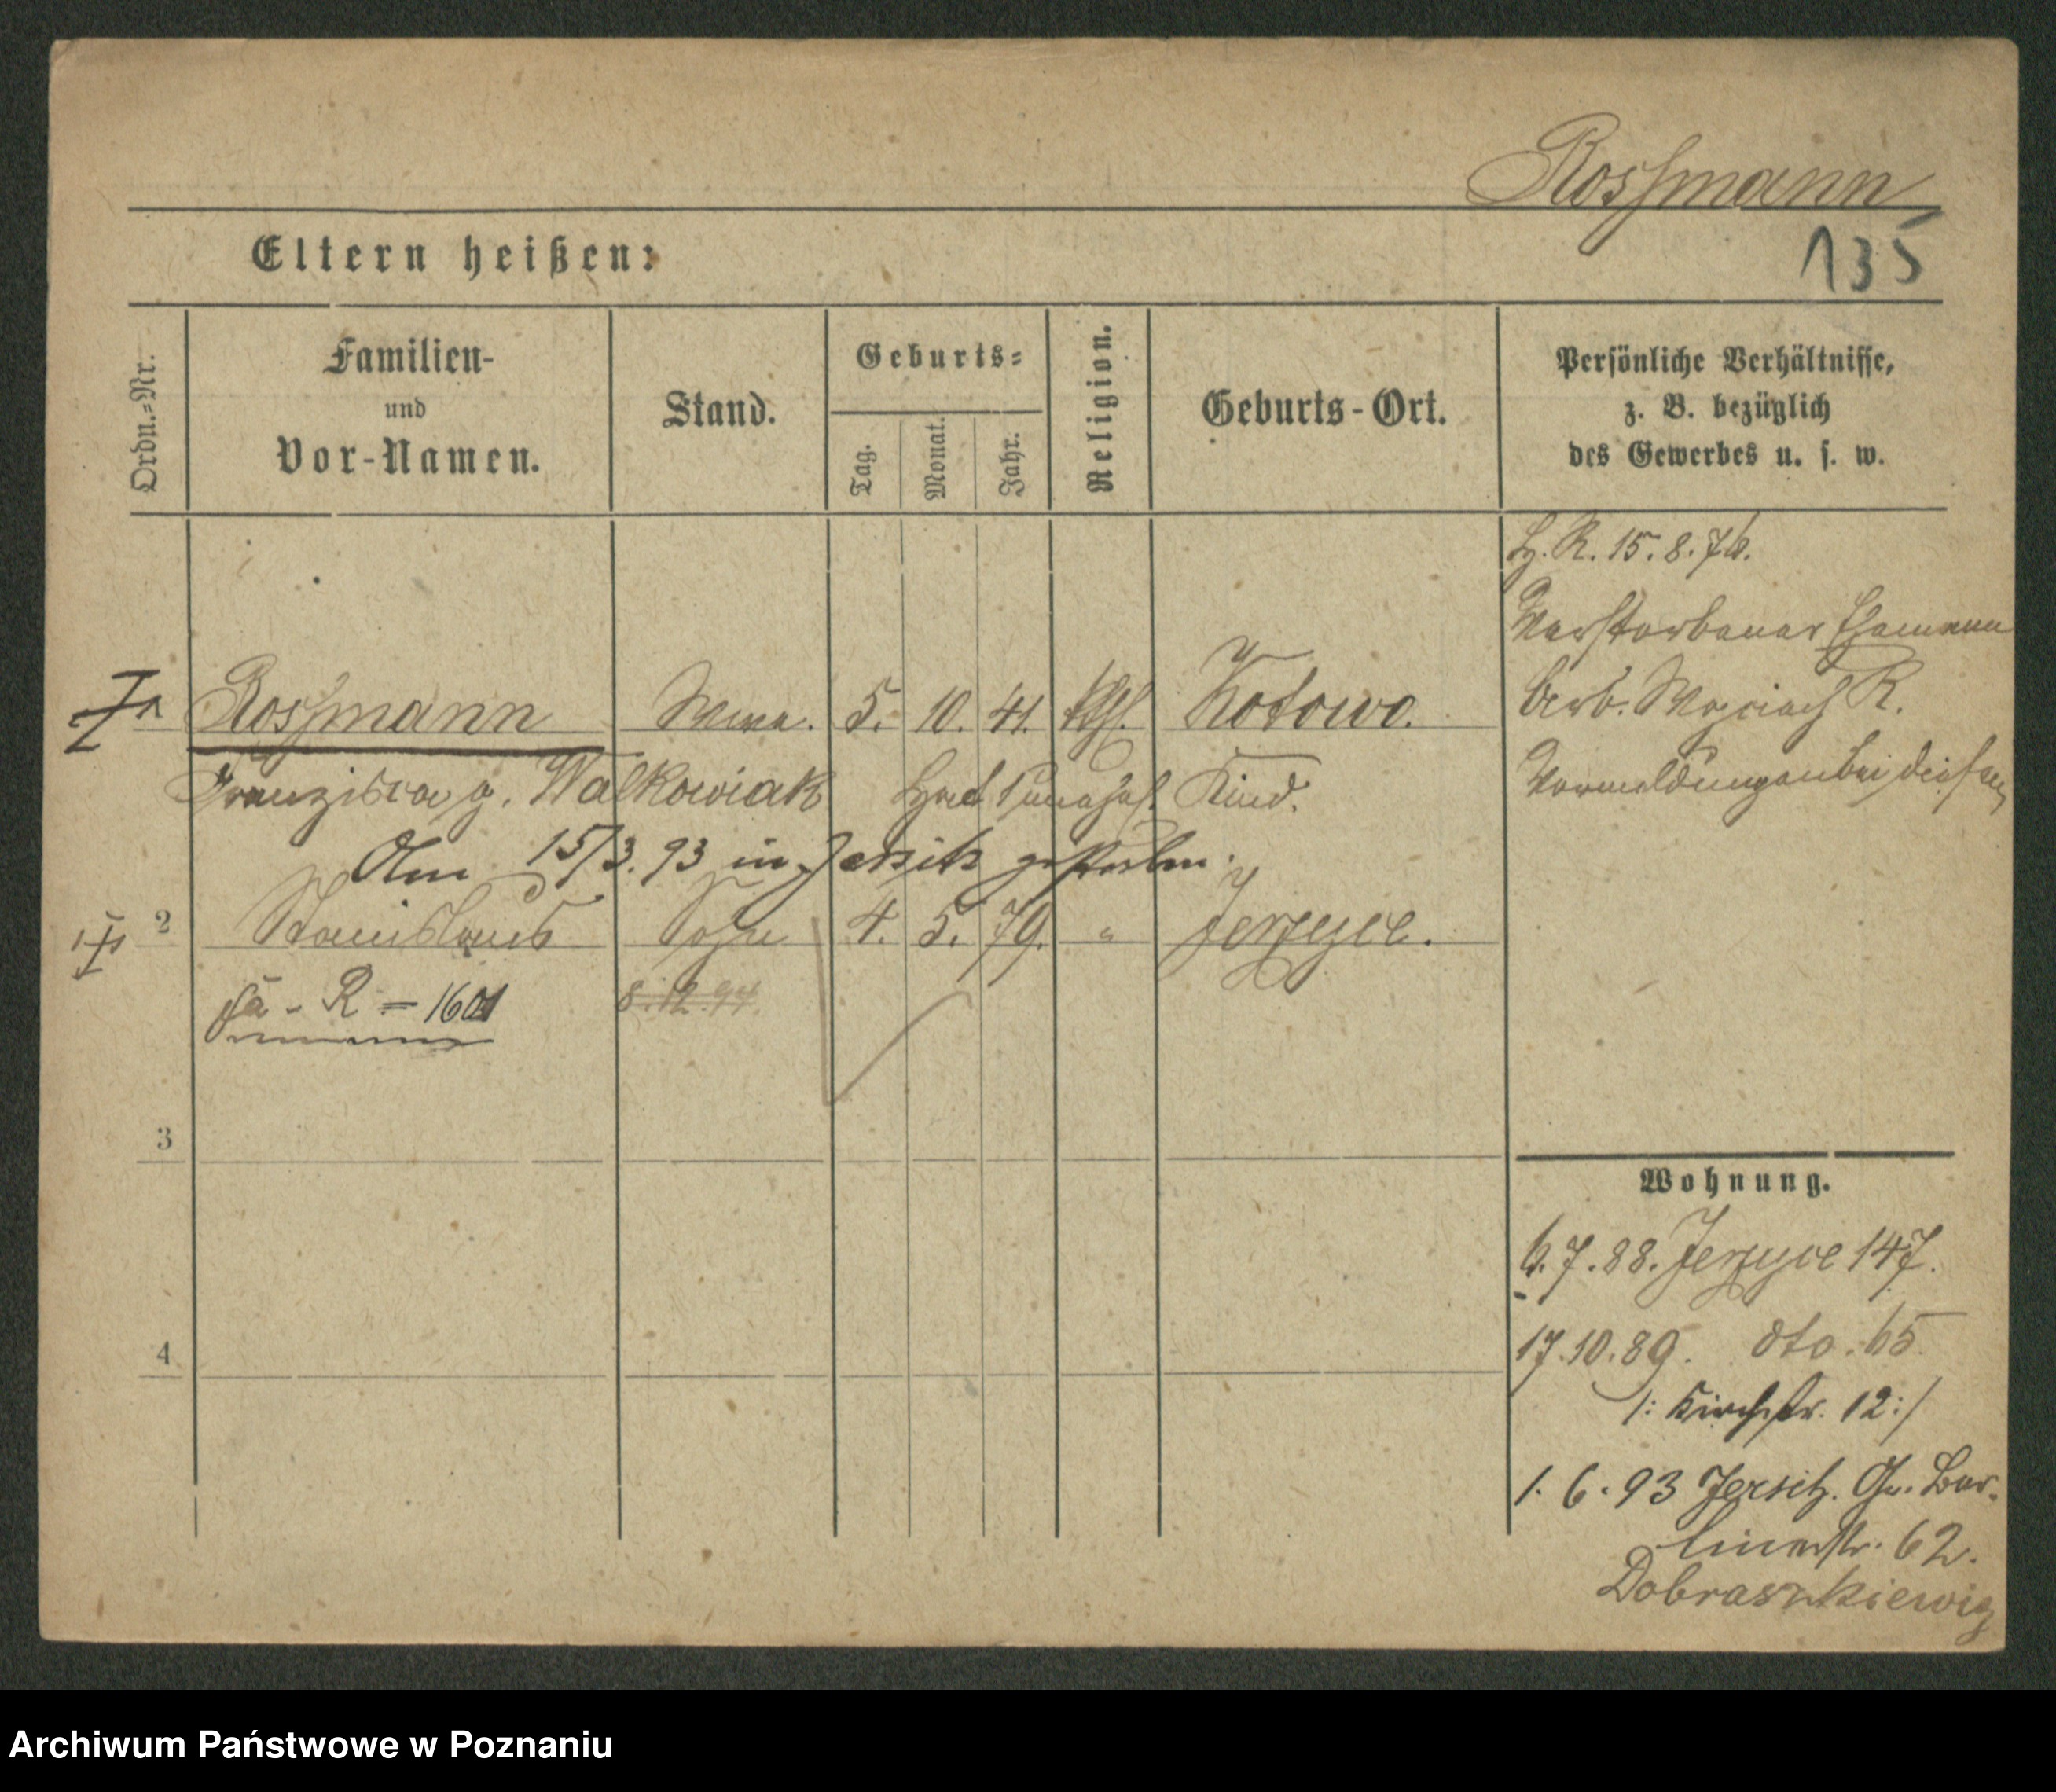 Rossmann
135
Eltern heißen:
Ordn.-Nr.
Familien-
und
Vor-Namen.
Stand.
Geburts-
Tag.
Monat.
Jahr.
Religion.
Geburts-Ort.
Persönliche Verhältnisse,
z. B. bezüglich
des Gewerbes u. s. w.
R. 15. 8. 76.
Verstorbener Ehemann
Arb. Wojciech R.
Vermeldungen bei diesem
Rossmann Wwe. 5. 10. 41. kath. Kotowo.
Franziska g. Walkowiak Hat 1 unehel. Kind.
Am 15/3. 93 in Jersitz gestorben.
2 Stanislaus Sohn 4. 5. 79. " Jerzyce.
R = 1601
8. 12. 94.
3
4
Wohnung.
6. 7. 88. Jerzyce 147.
17. 10. 89. dto. 65
/: Kirchstr. 12 :/
1. 6. 93 Jersitz. Gr. Ber-
linerstr. 62.
Dobraszkiewicz
Archiwum Państwowe w Poznaniu